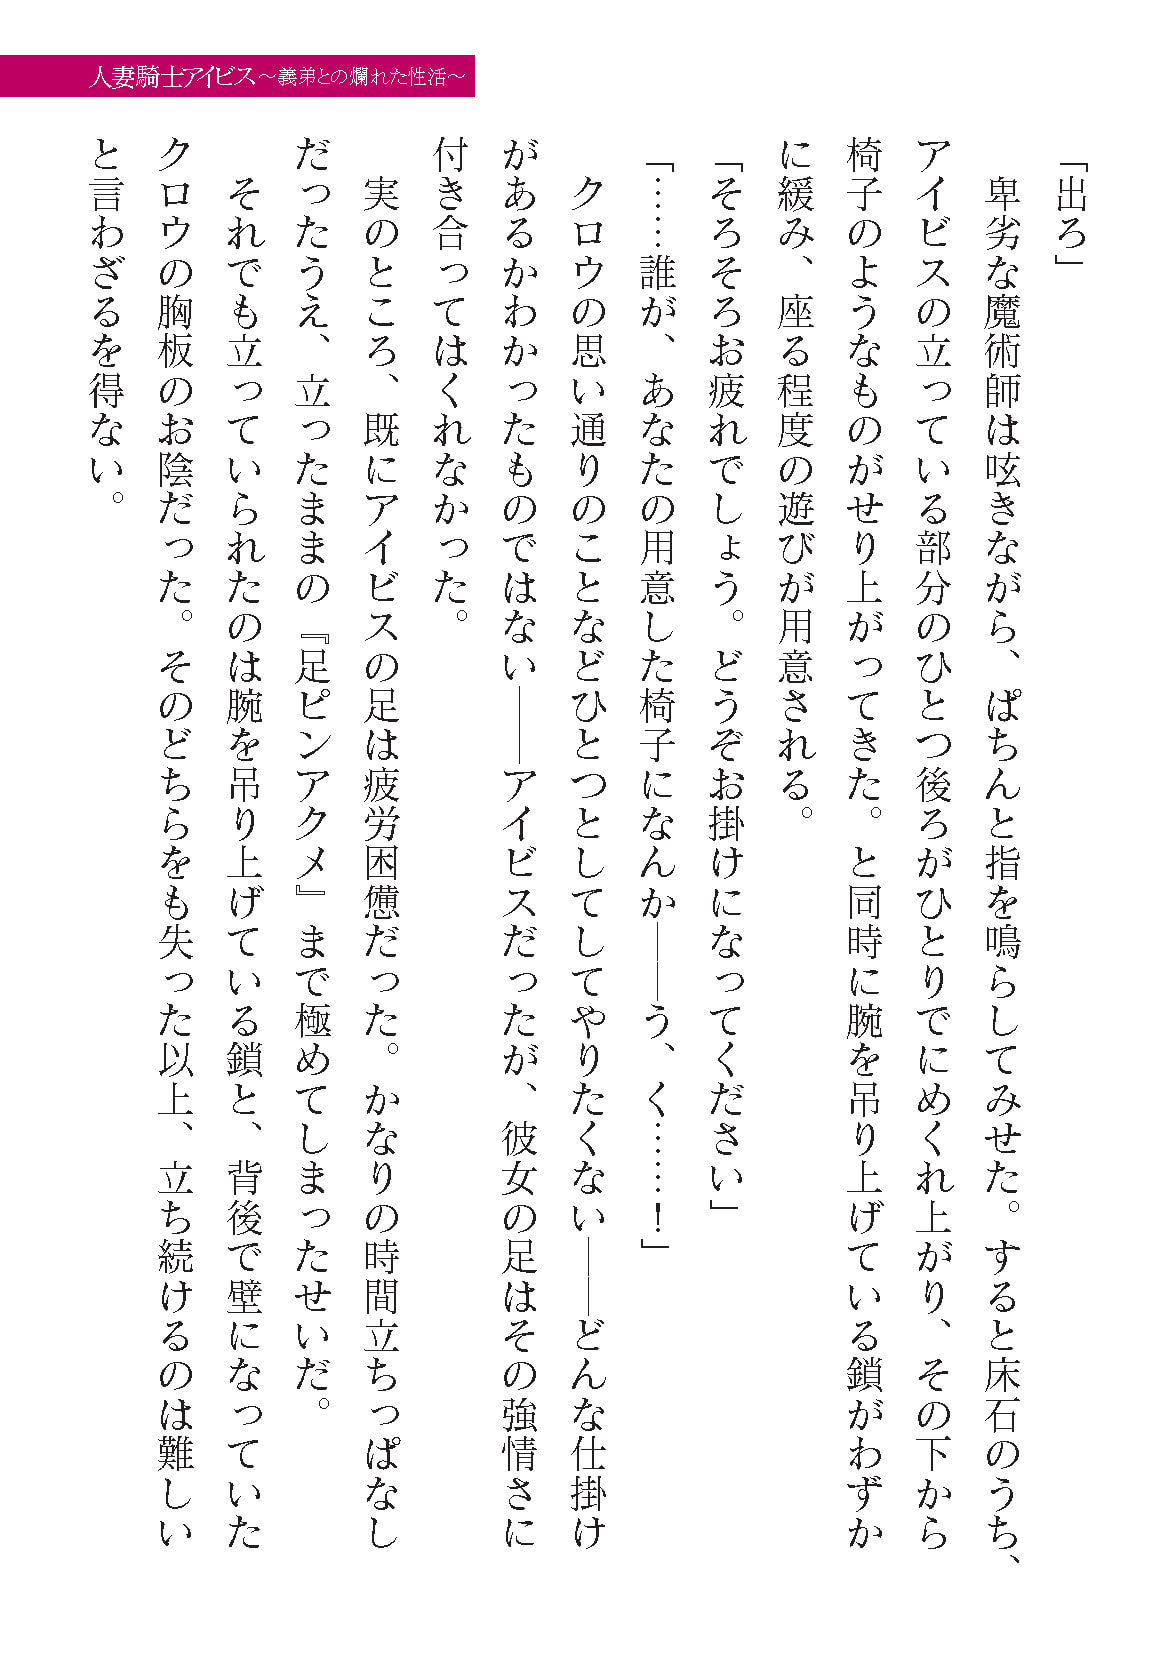 人妻騎士アイビス～義弟との爛れた性活～
「出ろ」
　卑劣な魔術師は呟きながら、ぱちんと指を鳴らしてみせた。すると床石のうち、
アイビスの立っている部分のひとつ後ろがひとりでにめくれ上がり、その下から
椅子のようなものがせり上がってきた。と同時に腕を吊り上げている鎖がわずか
に緩み、座る程度の遊びが用意される。
「そろそろお疲れでしょう。どうぞお掛けになってください」
「……誰が、あなたの用意した椅子になんか――う、く……！」
　クロウの思い通りのことなどひとつとしてしてやりたくない――どんな仕掛け
があるかわかったものではない――アイビスだったが、彼女の足はその強情さに
付き合ってはくれなかった。
　実のところ、既にアイビスの足は疲労困憊だった。かなりの時間立ちっぱなし
だったうえ、立ったままの『足ピンアクメ』まで極めてしまったせいだ。
　それでも立っていられたのは腕を吊り上げている鎖と、背後で壁になっていた
クロウの胸板のお陰だった。そのどちらをも失った以上、立ち続けるのは難しい
と言わざるを得ない。